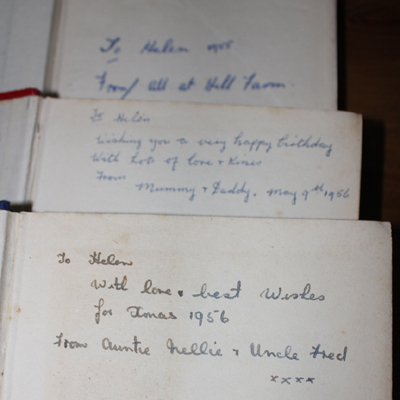 To Helen 1955
From all at Hill Farm
To Helen
Wishing you a very happy birthday
With lots of love & Kisses
From
Mummy & Daddy, May 9th 1956
To Helen
With love & best Wishes
for Xmas 1956
From Auntie Nellie & Uncle Fred
xxxx